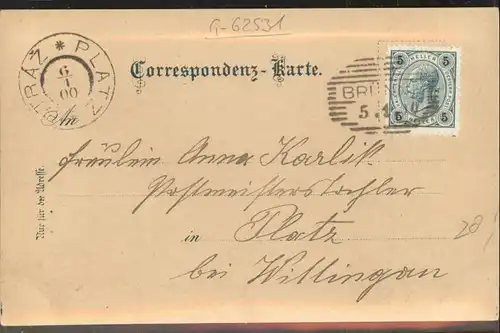 G-62531
STRÁŽ * PLATZ
6
1
00
Correspondenz-Karte.
BRÜNN
5.1
5 HELLER 5
5 5
An
Fräulein Anna Karlik
Postmeisterstochter
in Platz
bei Wittingau
Nur für die Adresse.
20